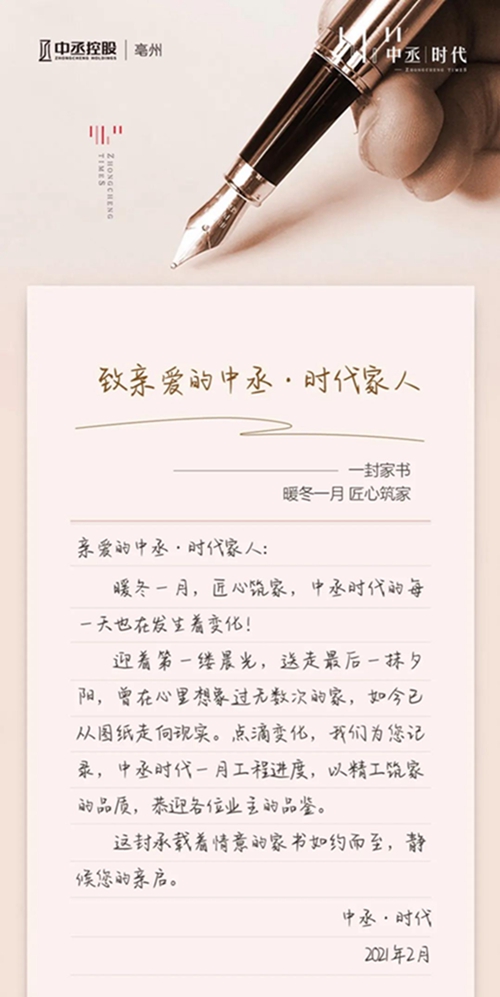 中丞控股 亳州
ZHONGCHENG HOLDINGS
中丞 时代
ZHONGCHENG TIMES
ZHONGCHENG
TIMES
致亲爱的中丞·时代家人
一封家书
暖冬一月 匠心筑家
亲爱的中丞·时代家人:
暖冬一月，匠心筑家，中丞时代的每
一天也在发生着变化!
迎着第一缕晨光，送走最后一抹夕
阳，曾在心里想象过无数次的家，如今已
从图纸走向现实。点滴变化，我们为您记
录，中丞时代一月工程进度，以精工筑家
的品质，恭迎各位业主的品鉴。
这封承载着情意的家书如约而至，静
候您的亲启。
中丞·时代
2021年2月